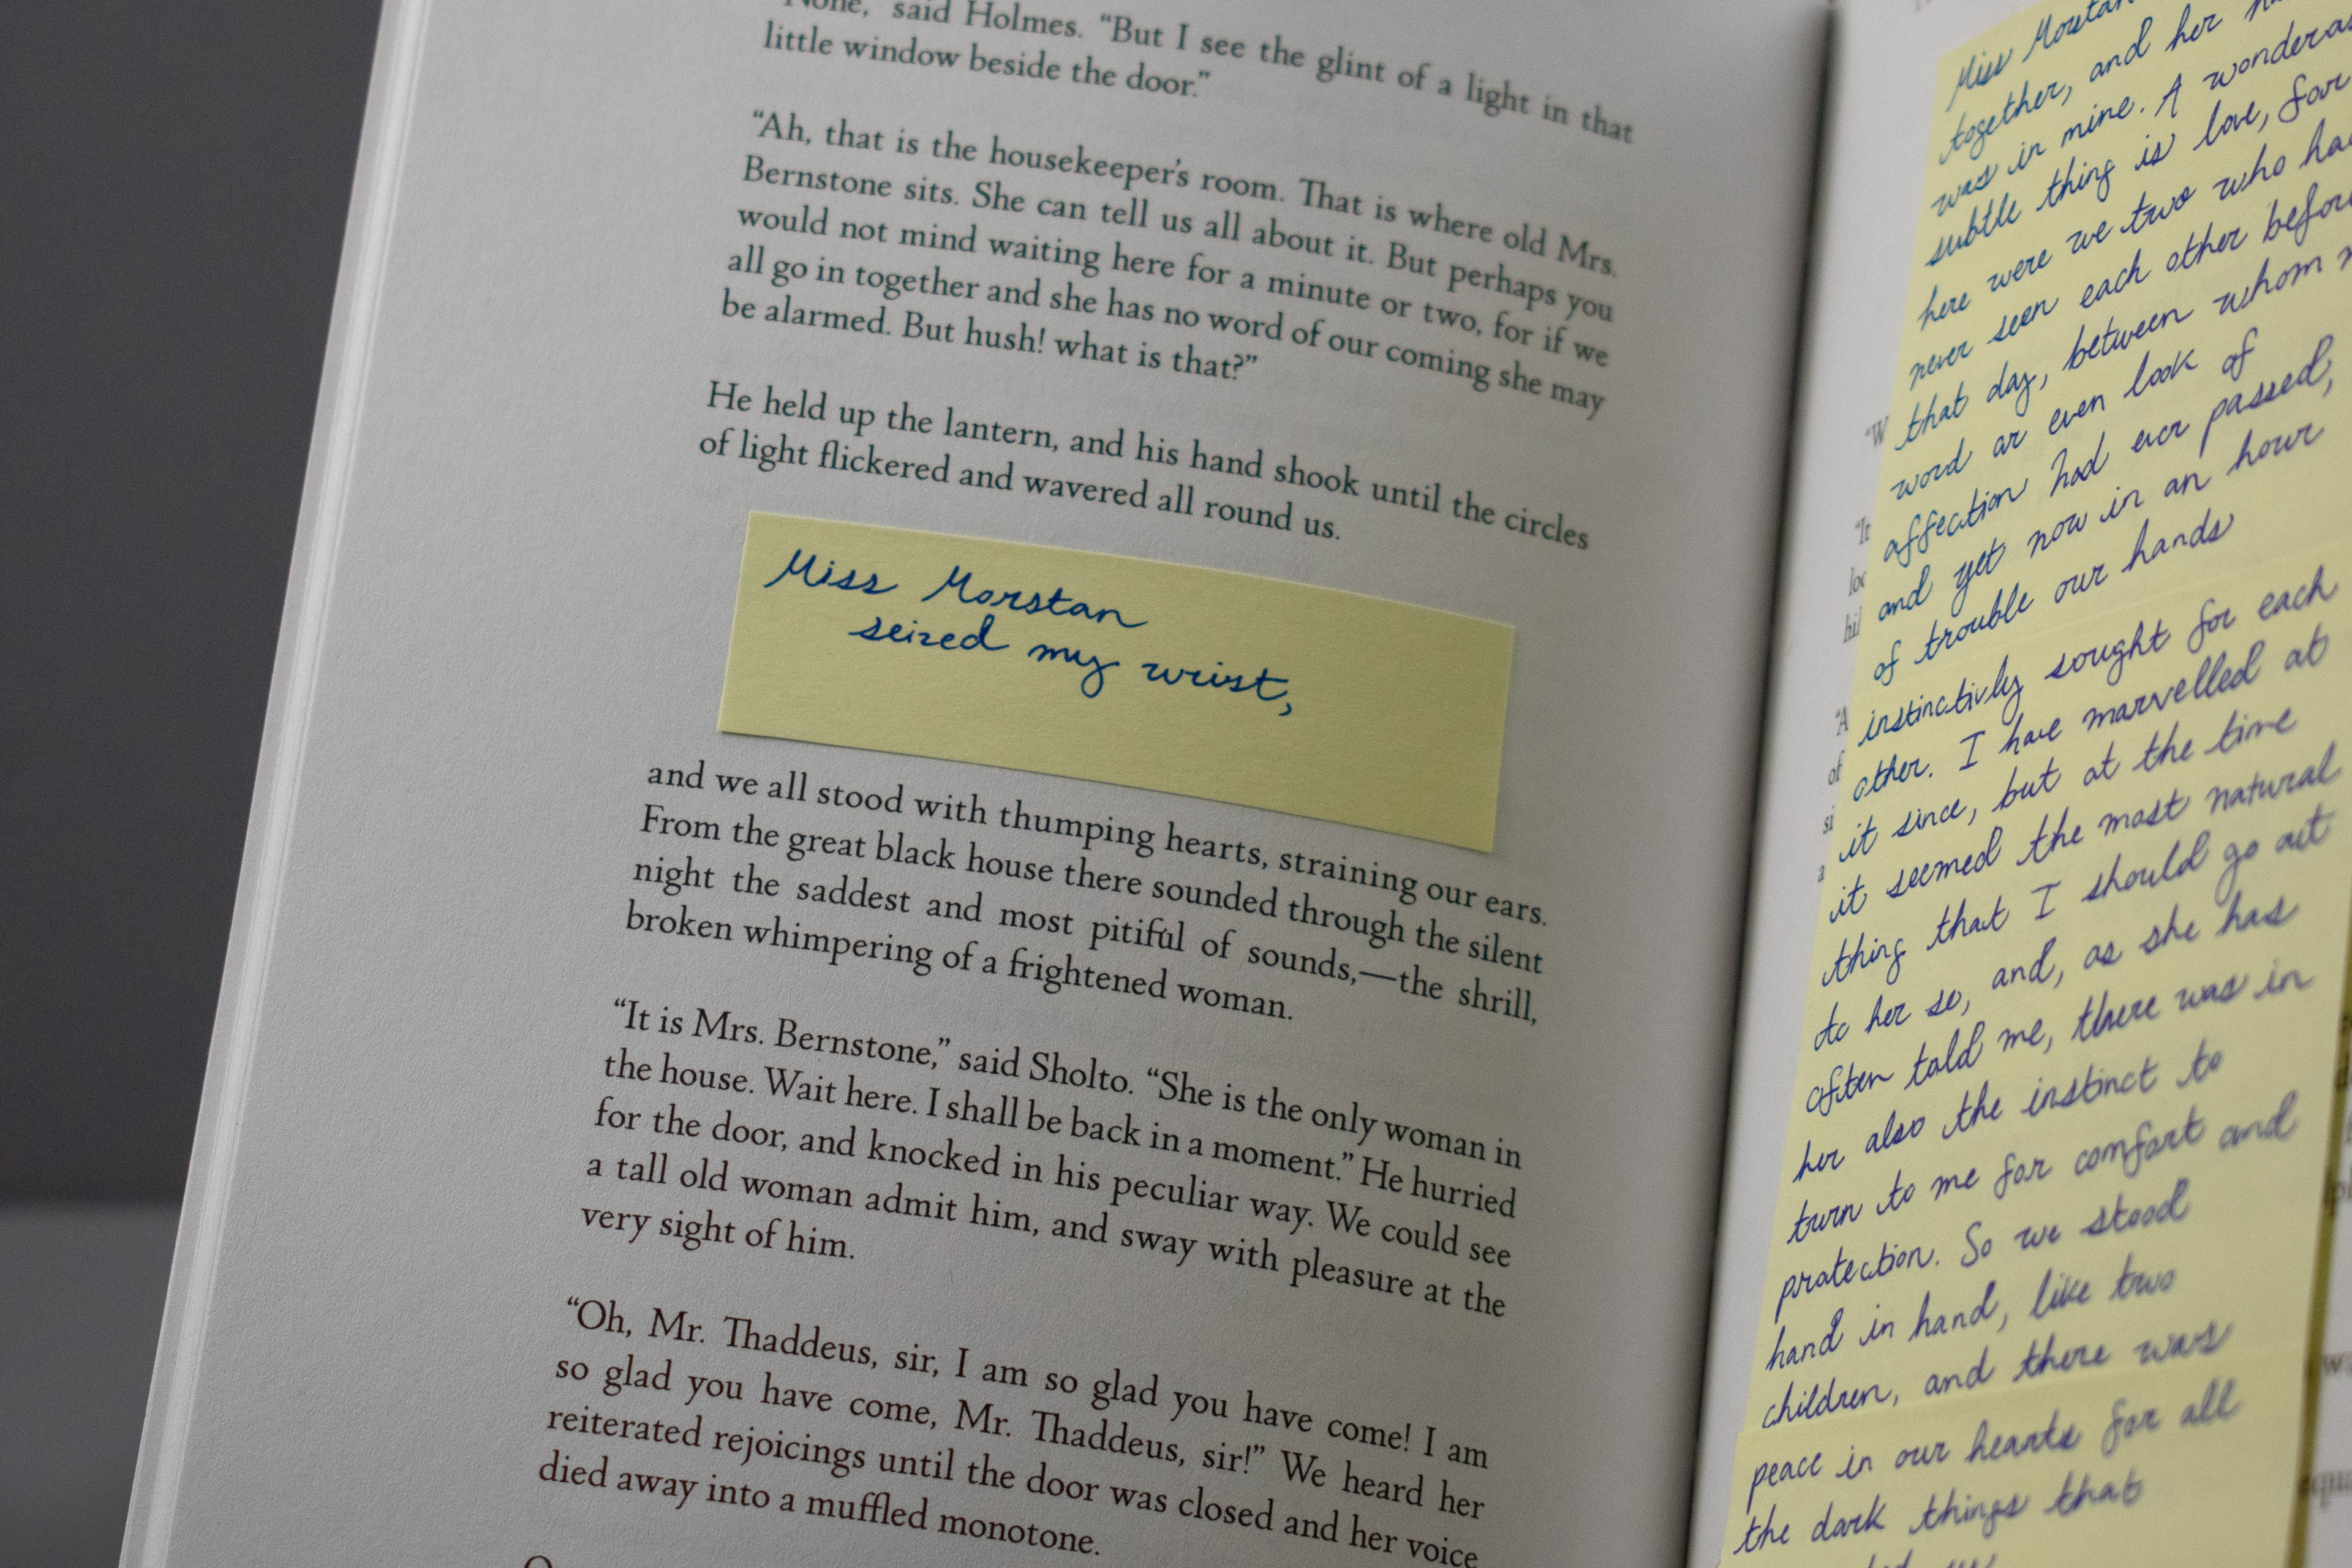 None," said Holmes. "But I see the glint of a light in that
little window beside the door."
"Ah, that is the housekeeper's room. That is where old Mrs.
Bernstone sits. She can tell us all about it. But perhaps you
would not mind waiting here for a minute or two, for if we
all go in together and she has no word of our coming she may
be alarmed. But hush! what is that?"
He held up the lantern, and his hand shook until the circles
of light flickered and wavered all round us.
Miss Morstan
seized my wrist,
and we all stood with thumping hearts, straining our ears.
From the great black house there sounded through the silent
night the saddest and most pitiful of sounds,—the shrill,
broken whimpering of a frightened woman.
"It is Mrs. Bernstone," said Sholto. "She is the only woman in
the house. Wait here. I shall be back in a moment." He hurried
for the door, and knocked in his peculiar way. We could see
a tall old woman admit him, and sway with pleasure at the
very sight of him.
"Oh, Mr. Thaddeus, sir, I am so glad you have come! I am
so glad you have come, Mr. Thaddeus, sir!" We heard her
reiterated rejoicings until the door was closed and her voice
died away into a muffled monotone.
Miss Morstan
together, and her
was in mine. A wondrous
subtle thing is love, for
here were we two who had
never seen each other before
that day, between whom
word or even look of
affection had ever passed,
and yet now in an hour
of trouble our hands
instinctivly sought for each
other. I have marvelled at
it since, but at the time
it seemed the most natural
thing that I should go out
to her so, and, as she has
often told me, there was in
her also the instinct to
turn to me for comfort and
protection. So we stood
hand in hand, like two
children, and there was
peace in our hearts for all
the dark things that